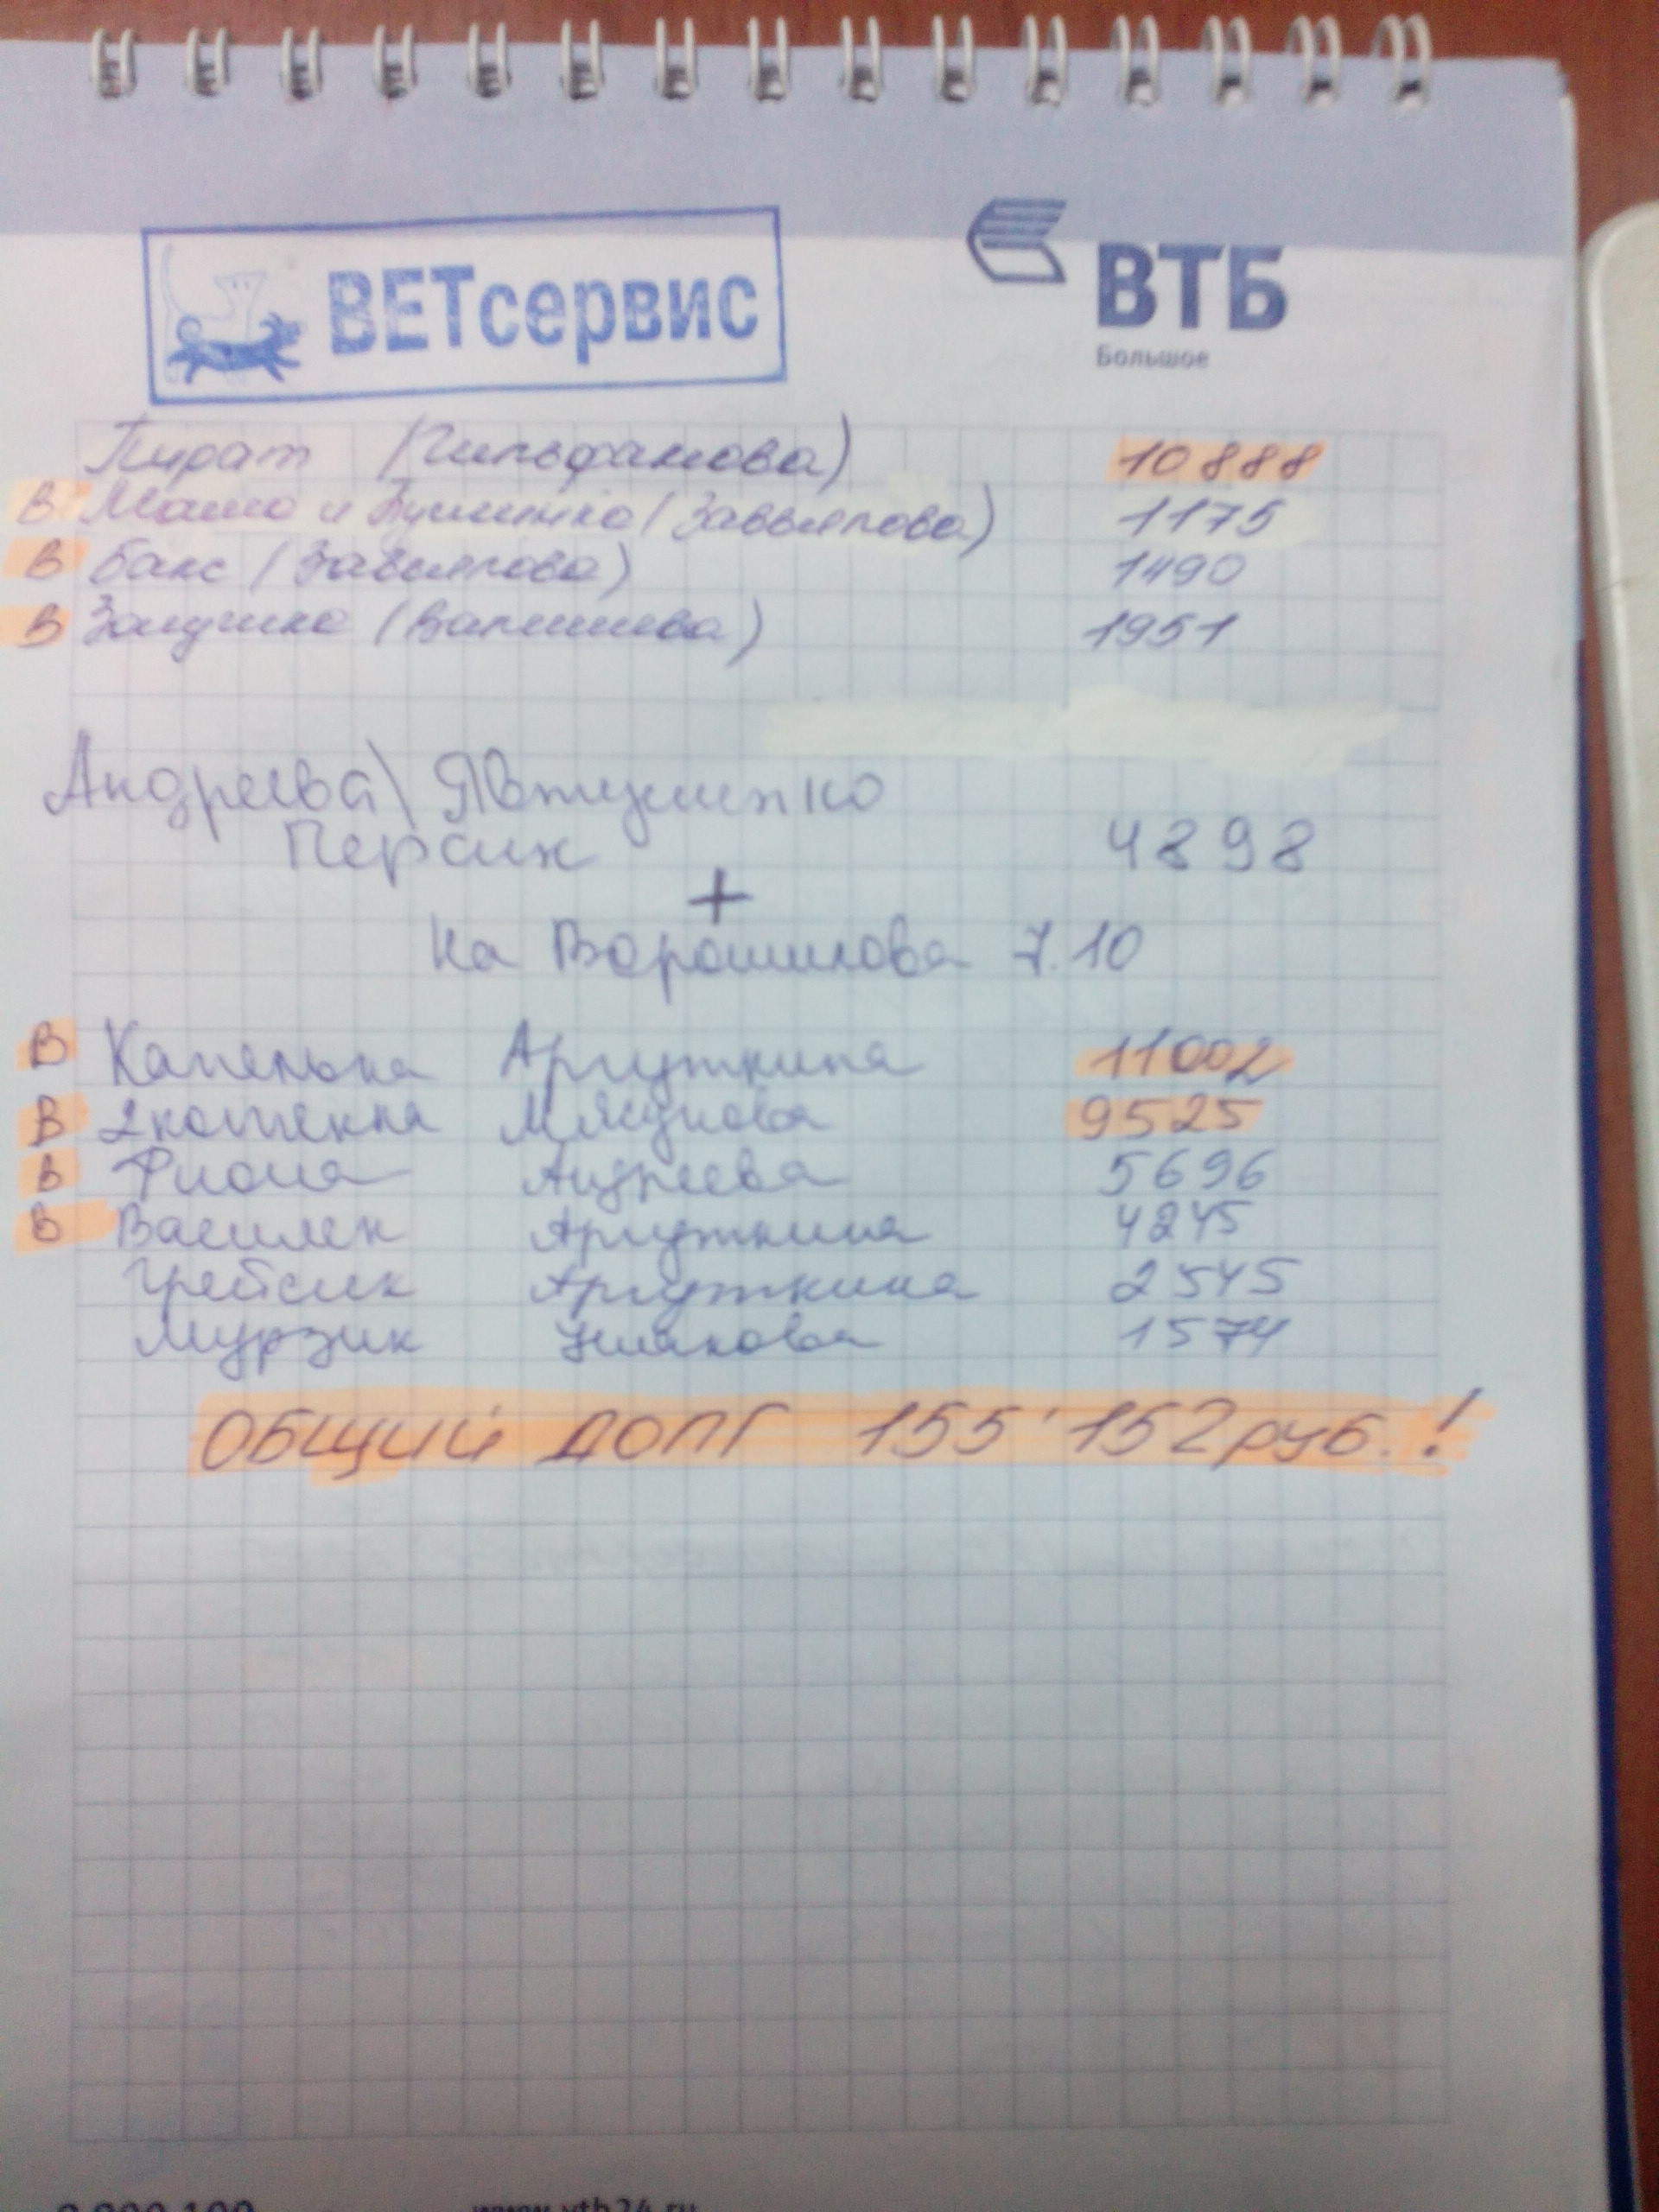 ВЕТсервис
ВТБ
Большое
Пират (Гильфанова) 10888
В Маша и Пушинка (Завьялова) 1175
В Бакс (Завьялова) 1490
В Заиушка (Валишева) 1951
Андреева\ Явтушенко
Персик 4898
+
На Ворошилова 7.10
В Капелька Аргуткина 11002
В 2котенка Мясумова 9525
В Фиона Андреева 5696
В Василек Аргуткина 4245
Грейсик Аргуткина 2545
Мурзик Ушакова 1574
ОБЩИЙ ДОЛГ 155'152руб.!
www.vtb24.ru